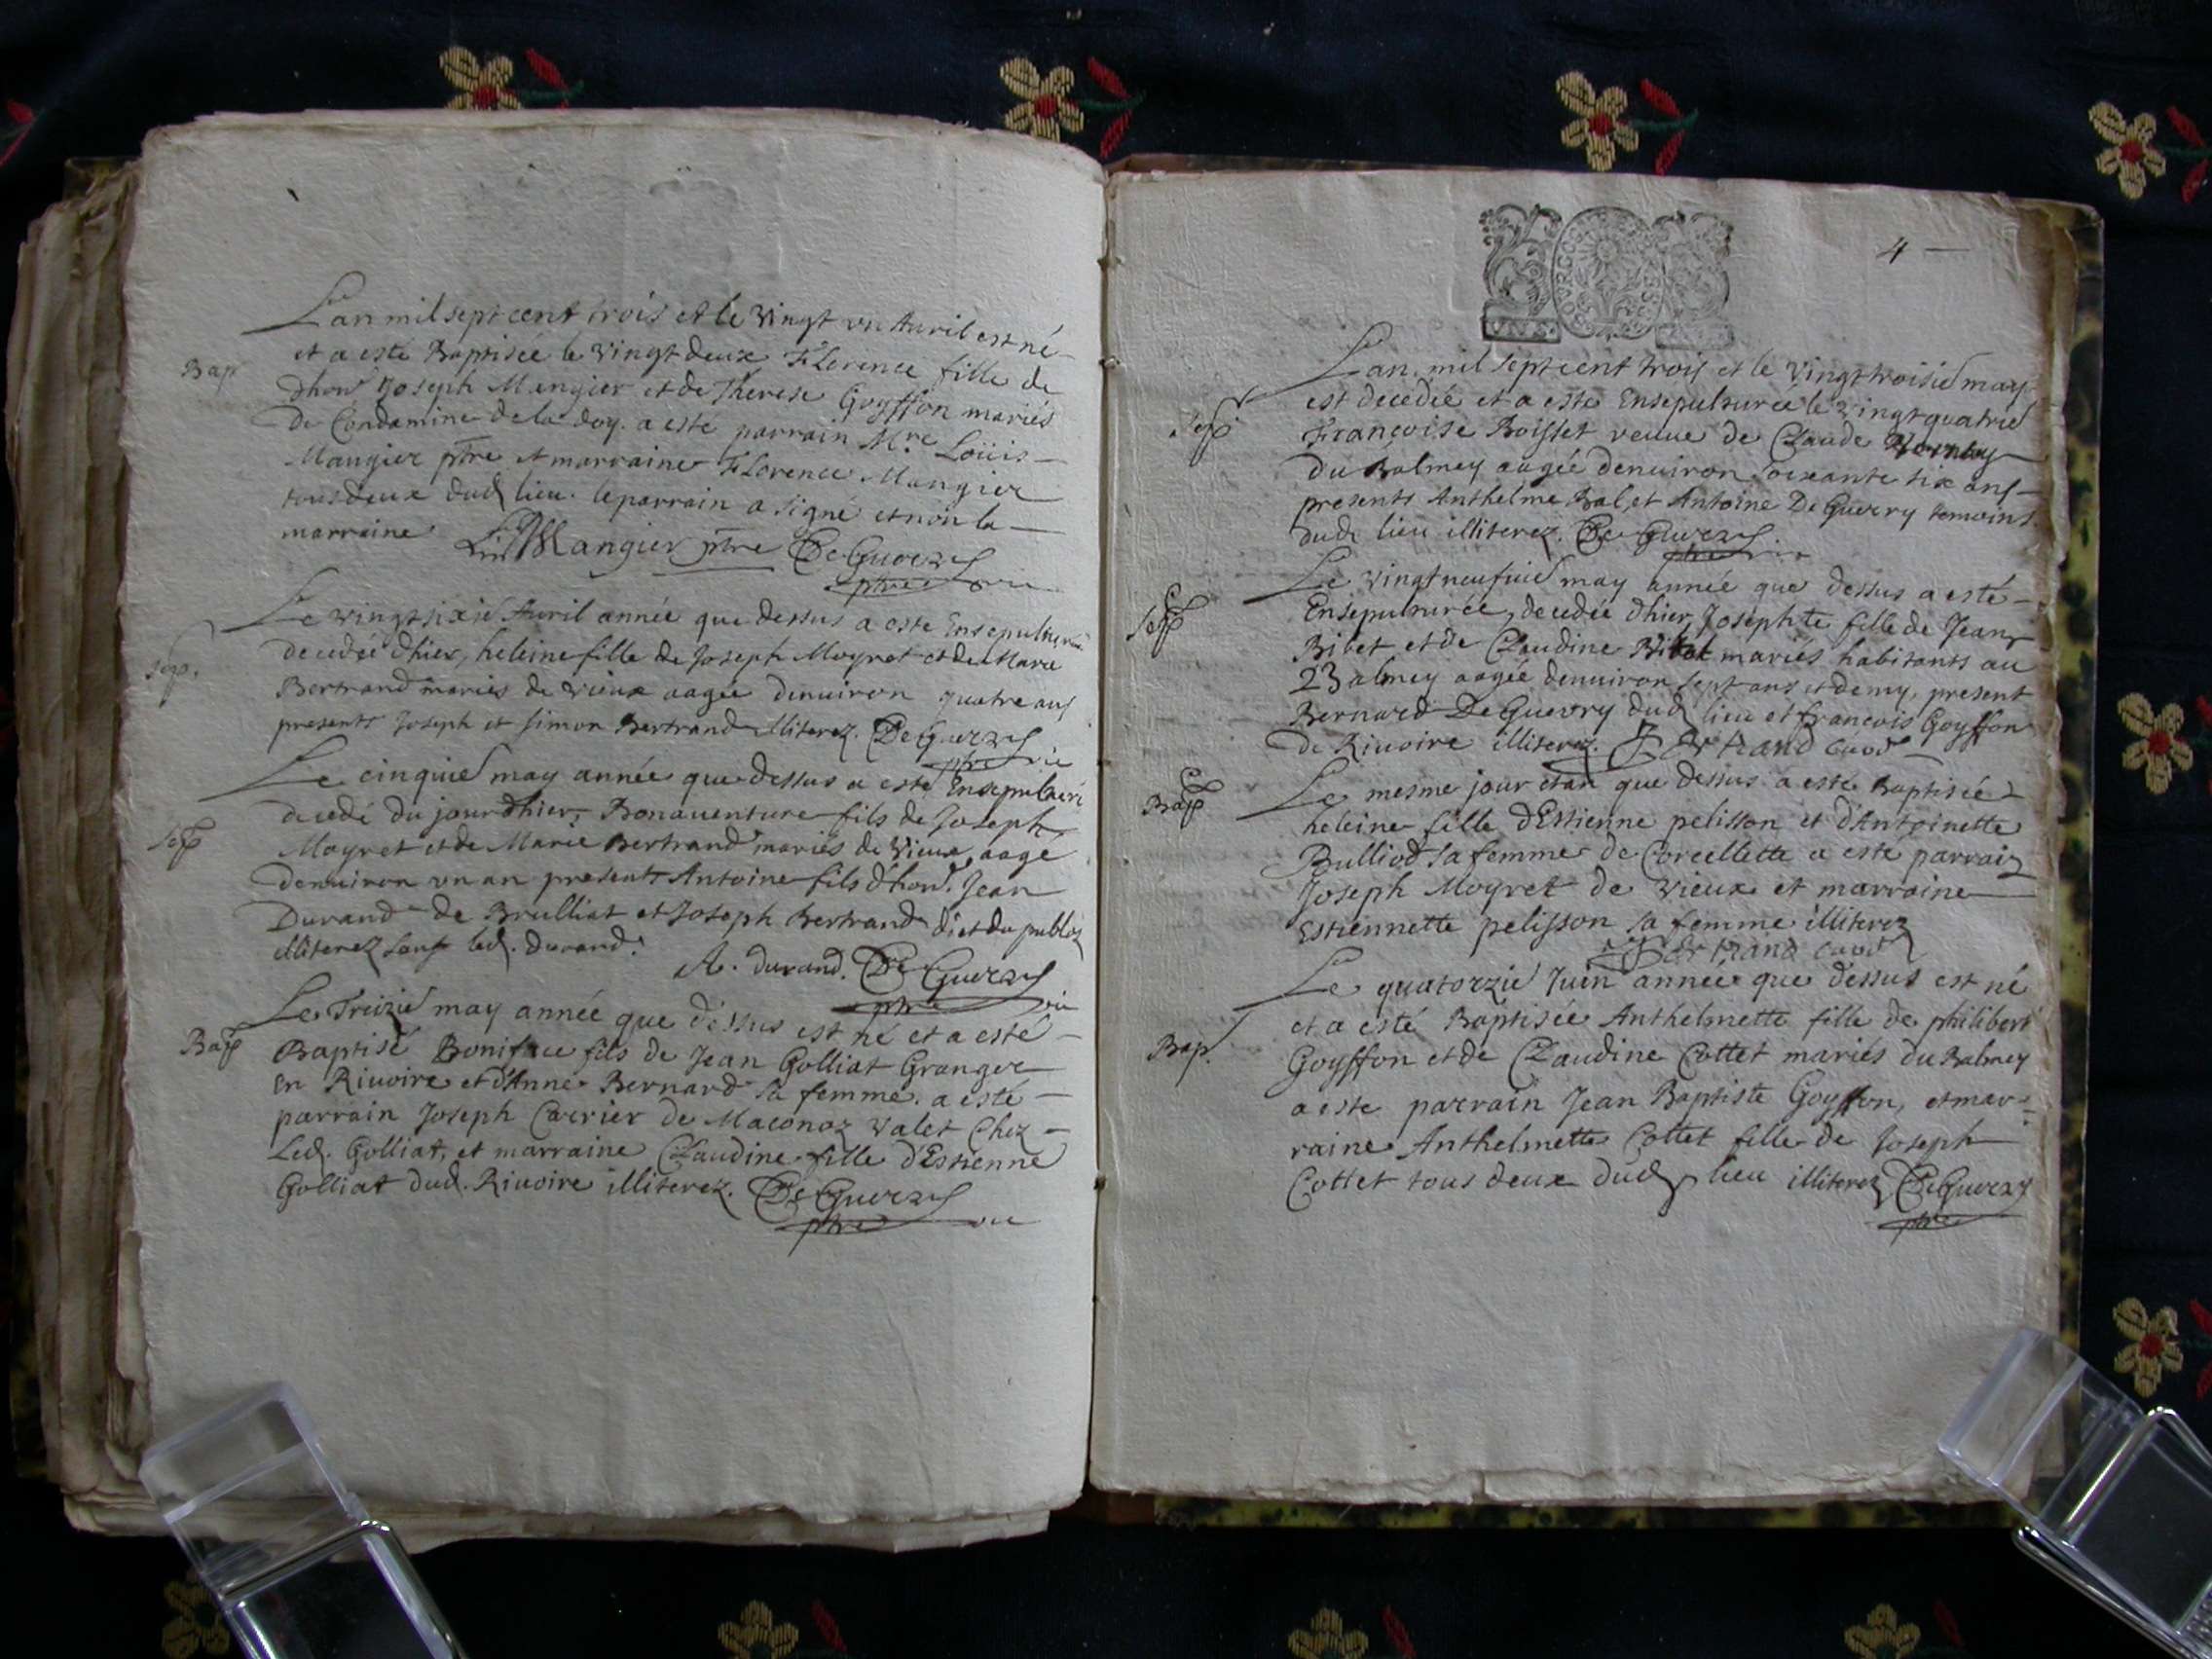 Lan mil sept cent trois et le vingt un Auril est né
Bap
et a esté Baptisée le vingt deux Florence fille de
dhon Joseph Mangier et de Therese Goyffon mariés
de Condamine de la doy. a este parrain Mre Loüis
Mangier ptre et marraine Florence Mangier
tous deux dud lieu. le parrain a signé et non la
marraine L Mangier ptre DeGuerry
ptre vie
Le vingt sixie Auril année que dessus a este Ensepulturée
Sep.
decedée dhier, heleine fille de Joseph Moyret et de Marie
Bertrand mariés de vieux aagée denuiron quatre ans
presents Joseph et simon Bertrand illiterez. DeGuerry
ptre vie
Le cinquie may année que dessus a esté Ensepulturé
Sep
decedé du jour dhier, Bonauenture fils de Joseph
Moyret et de Marie Bertrand mariés de vieux, aagé
denuiron un an presents Antoine fils dhon. Jean
Durand de Brulliat et Joseph Bertrand dict du publoz
illiterez sauf led. durand.
A. durand. DeGuerry
ptre vie
Le Treizie may année que dessus est né et a esté
Bap
Baptisé Boniface fils de Jean Golliat Granger
En Riuoire et d'Anne Bernard sa femme. a esté
parrain Joseph Carrier de Maconoz valet Chez
Led. Golliat, et marraine Claudine fille d'Estienne
Golliat dud. Riuoire illiterez. DeGuerry
ptre vie
4
BOURG BRESSE
UN S.
Lan. mil sept cent trois et le vingt troisie may
Sep
est decedée et a este Ensepulturée le vingt quatrie
Françoise Boisset veuue de Claude
du Balmey aagée denuiron soixante six ans
presents Anthelme Bal, et Antoine DeGuerry temoins
dud lieu illiterez. DeGuerry
ptre vie
Le vingt neufuie may année que dessus a esté
Sep
Ensepulturée, decedée dhier, Josephte fille de Jean
Bibet et de Claudine mariés habitants au
Balmey aagée denuiron sept ans et demy, present
Bernard DeGuerry dud lieu et françois Goyffon
de Riuoire illiterez. J Bertrand curé
Bap
Le mesme jour et an que dessus a esté Baptisée
heleine fille d'Estienne pelisson et d'Antoinette
Bulliod sa femme de Corcellette a este parrain
Joseph Moyret de vieux et marraine
Estiennette pelisson sa femme illiterez
J Bertrand curé
Le quatorzie Juin année que dessus est né
Bap.
et a esté Baptisée Anthelmette fille de philibert
Goyffon et de Claudine Cottet mariés du Balmey
a este parrain Jean Baptiste Goyffon, et mar=
raine Anthelmette Cottet fille de Joseph
Cottet tous deux dud lieu illiterez DeGuerry
ptre